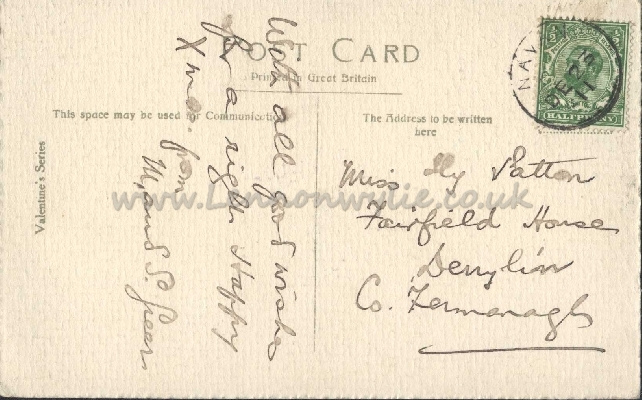 POST CARD
Printed in Great Britain
This space may be used for Communication
The Address to be written
here
Valentine's Series
With all good wishes
for a right Happy
Xmas. from
M. and S.
Miss Patton
Fairfield House
Derrylin
Co. Fermanagh
NAV
DE 23
11
HALFPENNY
www.Londonwitie.co.uk